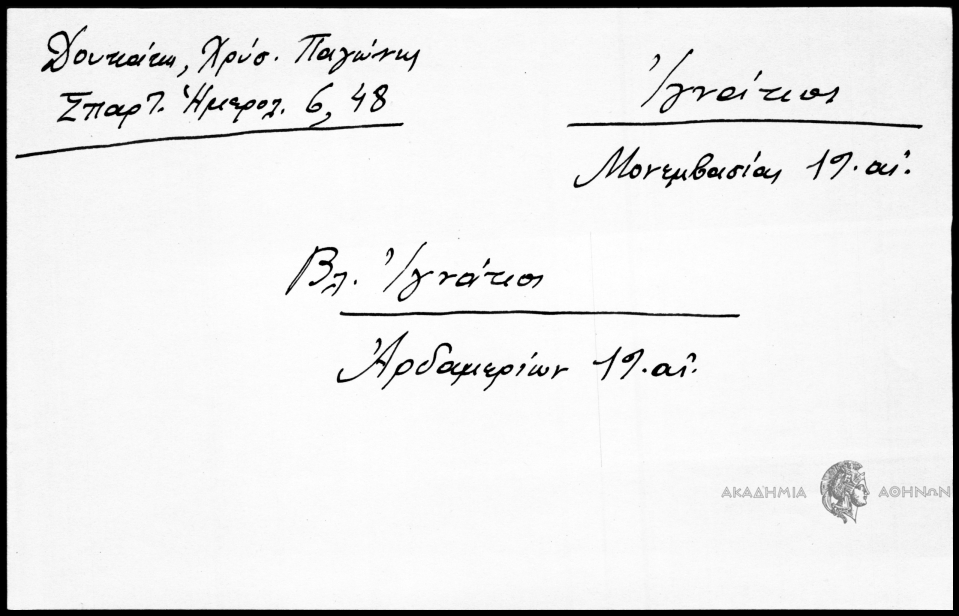 Δουκάκη, Χρύσ. Παγώνης
Σπαρτ. Ἡμερολ. 6, 48
Ἰγνάτιος
Μονεμβασίας 19. αἰ.
Βλ. Ἰγνάτιος
Ἀρδαμερίων 19. αἰ.
ΑΚΑΔΗΜΙΑ ΑΘΗΝΩΝ